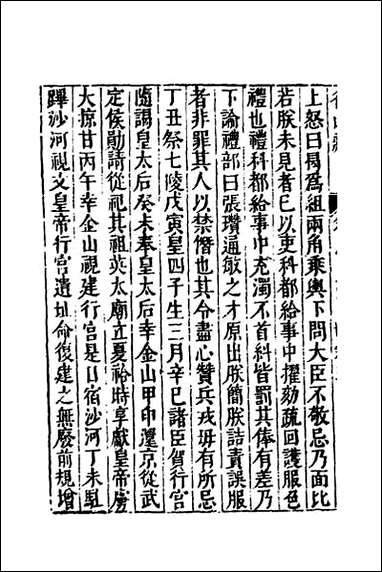 上怒曰曷爲組兩角乘輿下問大臣不敬忌乃面比
若朕未見者巳以吏科都給事中擢劾疏回護服色
禮也禮科都給事中充濁不首糾皆罰其俸有差乃
下諭禮部曰張瓚通敏之才原出朕簡朕詰責誤服
者非罪其人以禁僭也其令盡心贊兵戎毋有所忌
丁丑祭七陵戊寅皇四子生三月辛巳諸臣賀行宮
隨謁皇太后癸未奉皇太后幸金山甲申還京從武
定侯勛請從祀其祖英太廟立夏祫時享獻皇帝虜
大掠甘丙午幸金山視建行宮是日宿沙河丁未駐
蹕沙河視文皇帝行宮遺址命復建之無廢前規增